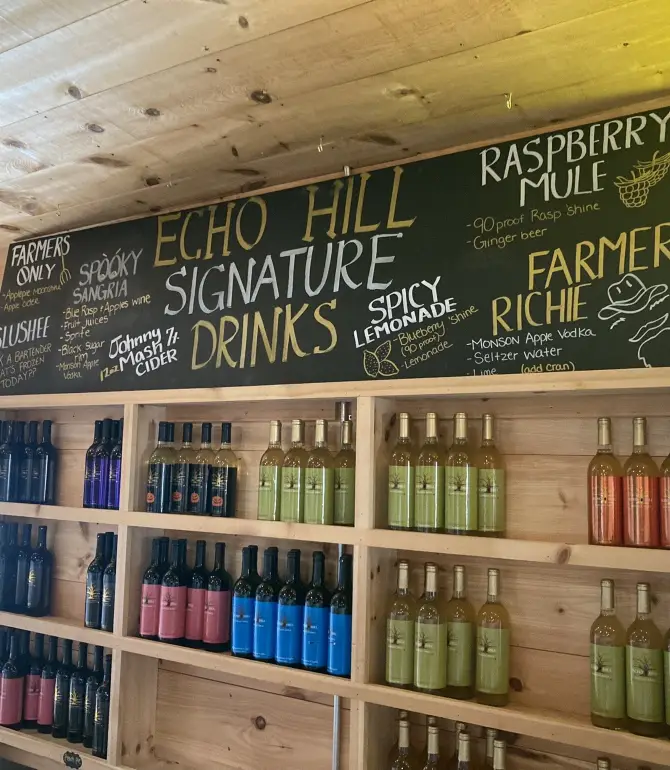 FARMERS
ONLY
- Applepie moonshine
Apple cider
SLUSHEE
K A BARTENDER
AT'S FROZEN
TODAY??
SPOOKY
SANGRIA
- Blue Rasp & Apples wine
- Fruit Juices
- Sprite
- Black Sugar
rim
- Monson Apple
Vodka
ECHO HILL
SIGNATURE
DRINKS
Johnny
Mash
CIDER
12oz
SPICY
LEMONADE
- Blueberry 'shine
(90 proof)
- Lemonade
RASPBERRY
MULE
- 90 proof Rasp 'shine
- Ginger beer
FARMER
RICHIE
- MONSON Apple Vodka
- Seltzer Water
- Lime (add cran)